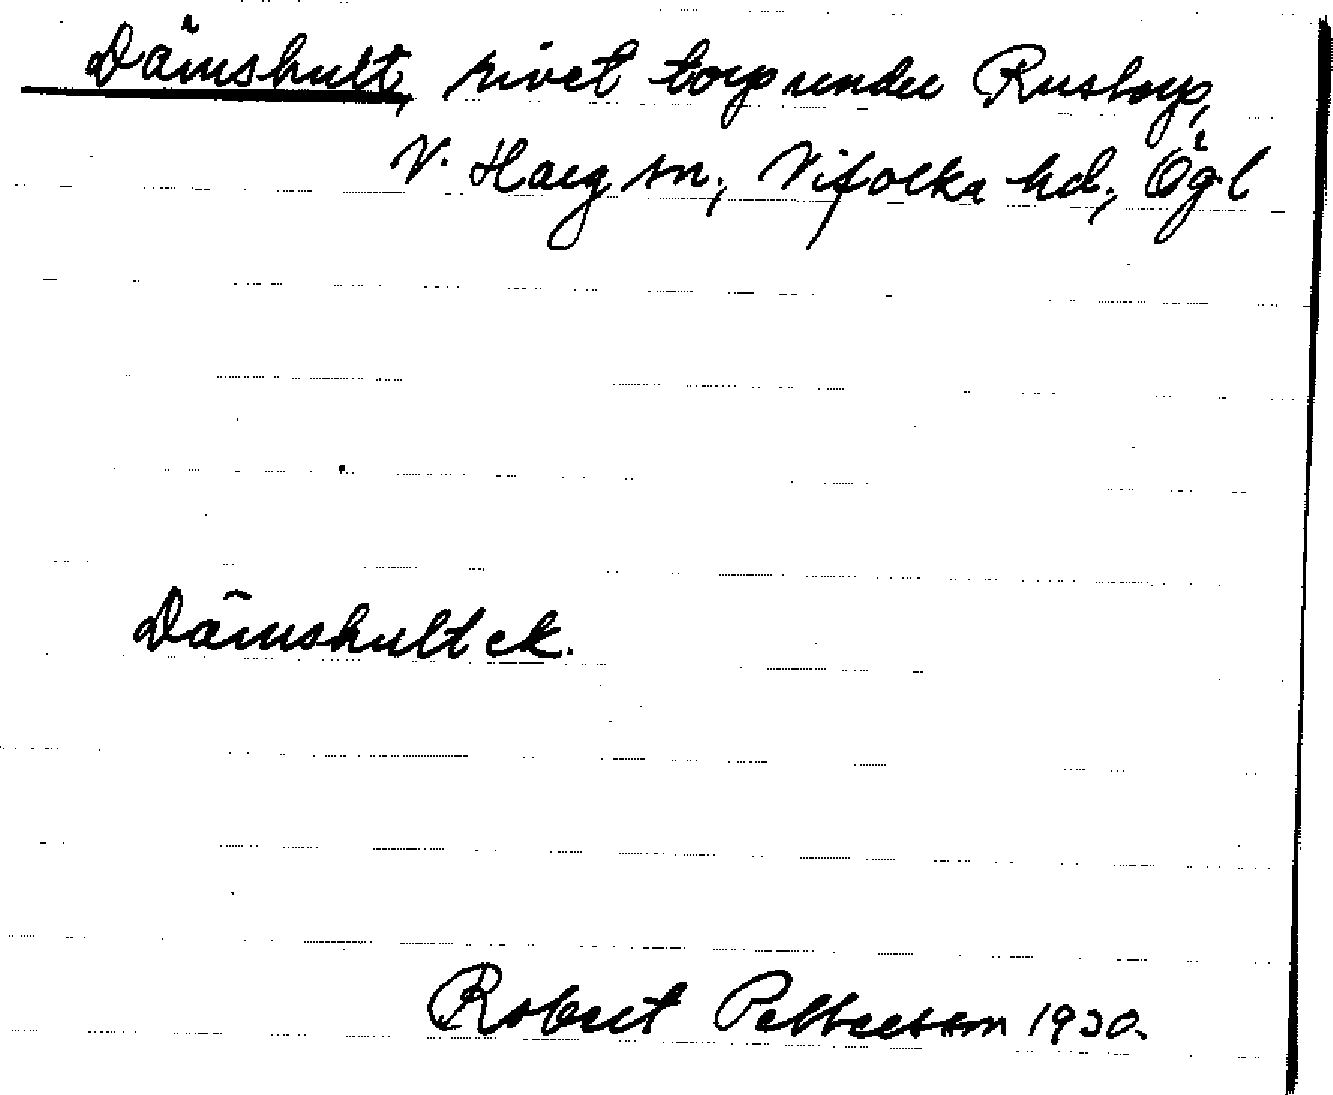 Dämshult, rivet torp under Rustorp,
V. Harg sn., Vifolka hd., Ögl
Dämshult ek.
Robert Pettersson 1930.